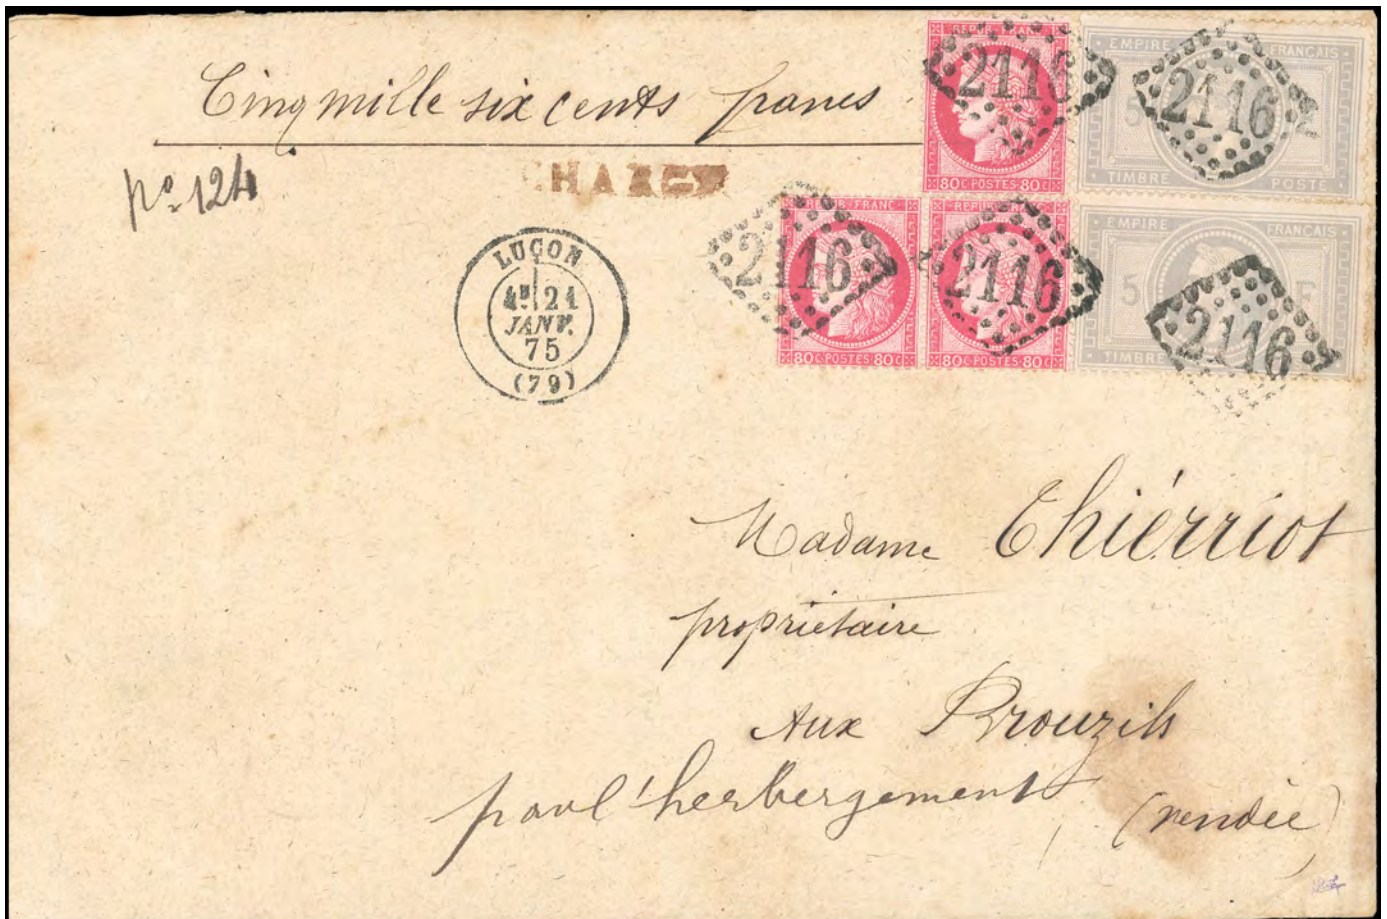 Cinq mille six cents francs
N° 124
CHARGÉ
LUÇON
4E 21
JANV.
75
(79)
REPUB FRANC
80 C POSTES 80 C
2116
EMPIRE FRANÇAIS
5
TIMBRE POSTE
2116
REPUB FRANC
80 C POSTES 80 C
2116
REPUB FRANC
80 C POSTES 80 C
2116
EMPIRE FRANÇAIS
5 F
TIMBRE
2116
Madame Thiérriot
propriétaire
Aux Brouzils
par l'herbergement
(vendée)